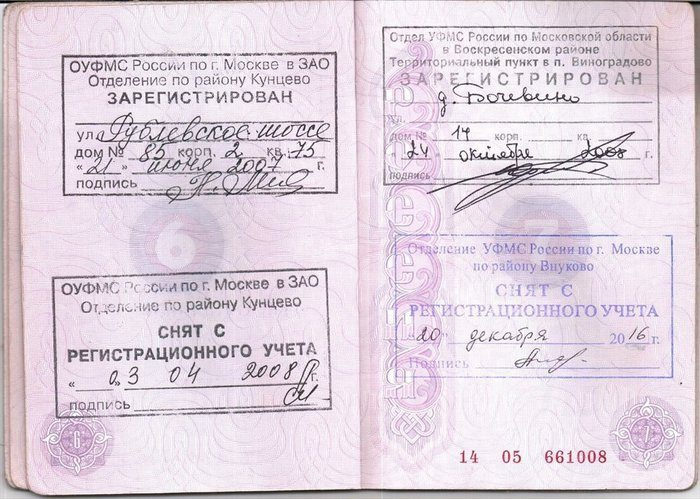 ОУФМС России по г. Москве в ЗАО
Отделение по району Кунцево
ЗАРЕГИСТРИРОВАН
ул Рублевское шоссе
дом № 85 корп. 2 кв. 75
"21" июня 2007 г.
подпись
ОУФМС России по г. Москве в ЗАО
Отделение по району Кунцево
СНЯТ С
РЕГИСТРАЦИОННОГО УЧЕТА
"03 04 2008 г.
подпись
6
Отдел УФМС России по Московской области
в Воскресенском районе
Территориальный пункт в п. Виноградово
ЗАРЕГИСТРИРОВАН
д.
ул.
дом № 14 корп. кв.
"24" октября 2008
подпись
Отделение УФМС России по г. Москве
по району Внуково
СНЯТ С
РЕГИСТРАЦИОННОГО УЧЕТА
"20" декабря 2016 г.
Подпись
7
14 05 661008